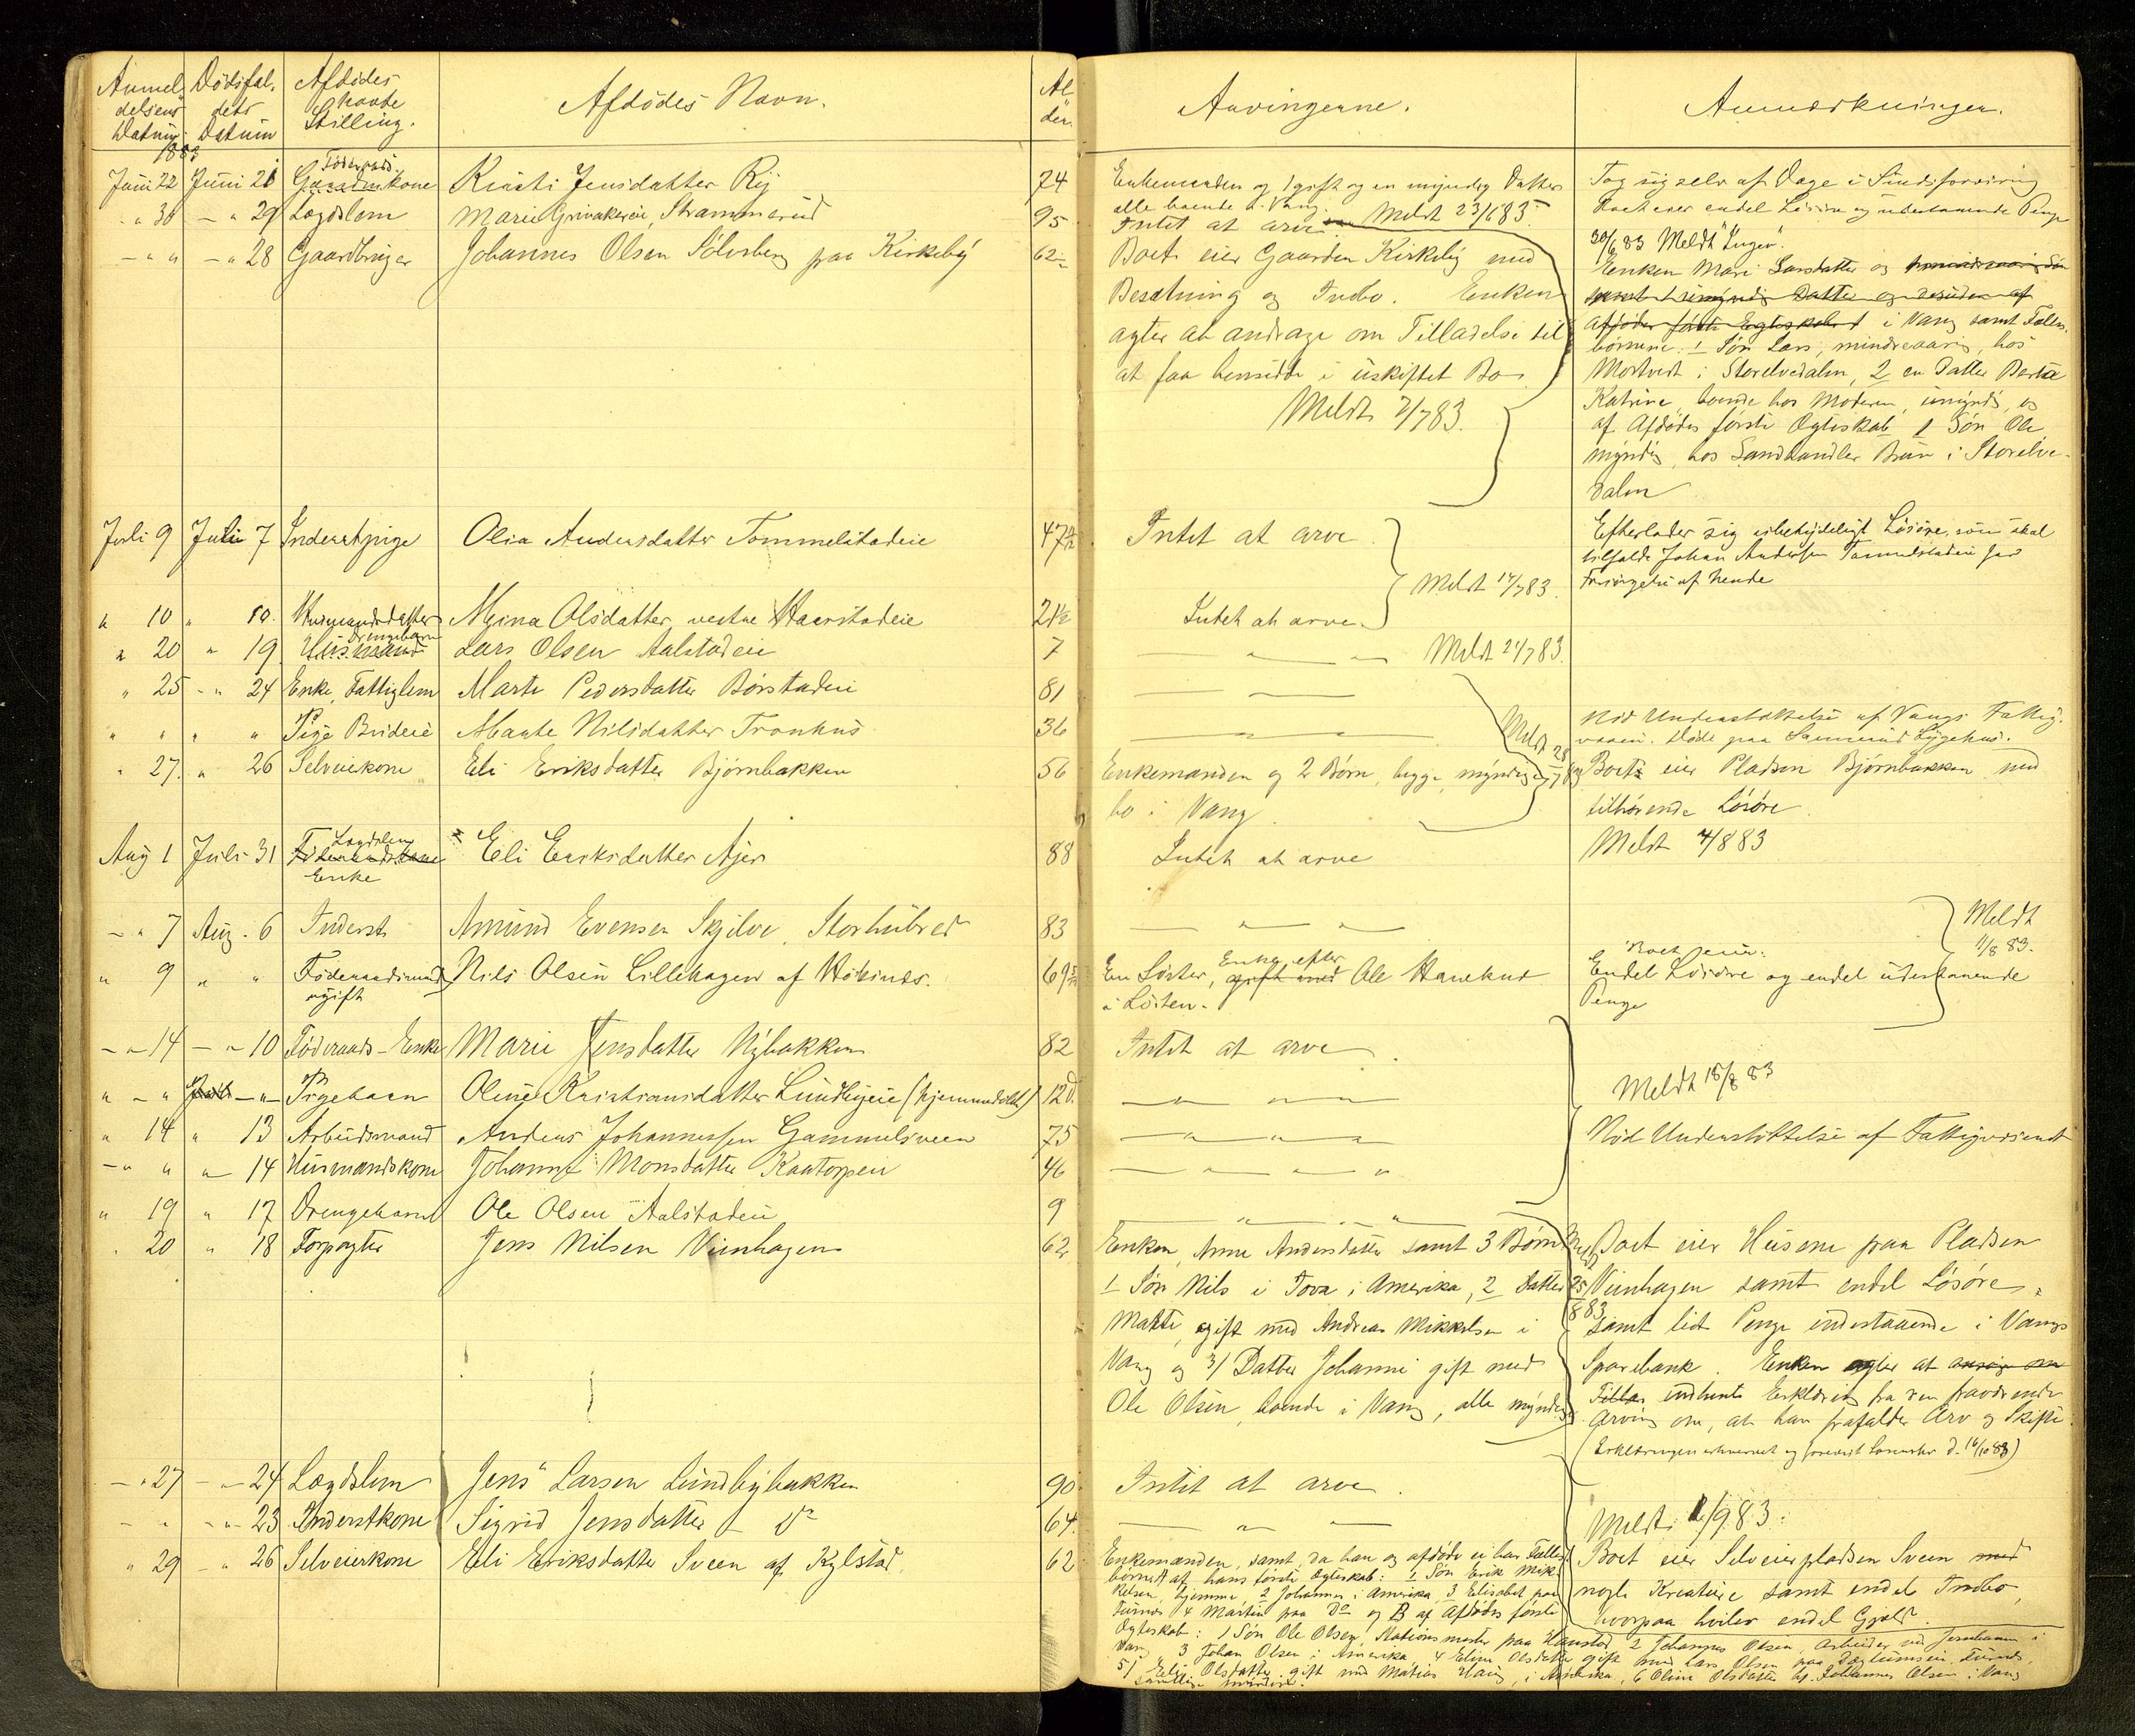 Anmel- delsens Datum Dödsfal- dets Datum Afdödes Stilling. Afdödes Navn. Al- der. Arvingerne. Anmærkninger.
1883
Juni 22 Juni 21 Föderaadskone Kirsti Jensdatter Ry 74 Enkemanden og 1 gift og en myndig Datter alle boende i Vang. Meldt 23/6 83 Tog sig selv af Dage i Sindsforvirring
Boet eier endel Lösöre og udestaaende Penge
" 30 - " 29 Lægdslem Marie Grinakereie, Strammerud 95 Intet at arve 30/6 83 Meldt "Ingen".
- " " - " 28 Gaardbruger Johannes Olsen Sölvsberg paa Kirkeby 62 Boet eier Gaarden Kirkeby med
Besætning og Indbo. Enken
agter at andrage om Tilladelse til
at faa hensidde i uskiftet Bo
Meldt 7/7 83.
Enken Mari Larsdatter og
i Vang samt Fælles-
börnene: 1 Sön Lars, mindreaarig, hos
Mortvedt i Storelvedalen, 2 en Datter Berthe
Katrine, boende hos Moderen, umyndig, og
af Afdödes förste Ægteskab 1 Sön Ole
myndig, hos Landhandler Bruu i Storelve-
dalen
Juli 9 Juli 7 Inderstpige Olia Andersdatter Tommelstadeie 47 Intet at arve Efterlader sig ubetydeligt Lösöre, som skal
tilfalde Johan Andersen Tommelstadeie for
Forsörgelse af hende
Meldt 14/7 83.
" 10 " 10. Husmandsdatter Mina Olsdatter vestre Haarstadeie 21½ Intet at arve.
" 20 " 19 Husmands Drengebarn Lars Olsen Aalstadeie 7 — " — " Meldt 21/7 83.
" 25 - " 24 Enke, Fattiglem Marte Pedersdatter Börstadeie 81 — —
" " " " Pige Brideie Maarte Nilsdatter Tronhus 36 — " — Nöd Understöttelse af Vangs Fattig-
væsen. Döde paa Sanerud Sygehus.
" 27. " 26 Selveierkone Eli Eriksdatter Björnbakken 56 Enkemanden og 2 Börn, begge myndige Boet eier Pladsen Björnbakken med
bo i Vang. tilhörende Lösöre
Meldt 28/7 83
Aug 1 Juli 31 Lægdslem Enke Eli Eriksdatter Ajer 88 Intet at arve Meldt 4/8 83
- " 7 Aug. 6 Inderst Amund Evensen Skjelve, Storhubred 83 — " — " — Meldt
11/8 83.
" 9 " " Föderaadsmand ugift Nils Olsen Lillehagen af Hökines. 69 En Söster, Enke efter Ole Hanekne
i Löiten. Boet eier:
Endel Lösöre og endel udestaaende
Penge
- " 14 - " 10 Föderaads-Enke Marie Jensdatter Nybakken 82 Intet at arve.
" - " " - " Pigebarn Oline Kristiansdatter Lundbyeie (hjemmedöbt) 12 d. — " — " — Meldt 18/8 83
" 14 " 13 Arbeidsmand Anders Johannessen Gammelsveen 75 — " — " — Nöd Understöttelse af Fattigvæsenet
- " " " 14 Husmandskone Johanne Monsdatter Kaatorpeie 46 — " — " — "
" 19 " 17 Drengebarn Ole Olsen Aalstadeie 9 — " — " —
" 20 " 18 Forpagter Jens Nilsen Viinhagen 62 Enken, Anne Andersdatter samt 3 Börn
1 Sön Nils i Iova i Amerika, 2 Datter
Marthe, gift med Andreas Mikkelsen i
Vang og 3/ Datter Johanne gift med
Ole Olsen, boende i Vang, alle myndige.
Meldt 25/8 83
Boet eier Husene paa Pladsen
Viinhagen samt endel Lösöre,
samt lidt Penge indestaaende i Vangs
Sparebank. Enken agter at ansöge om
Tillad indhente Erklæring fra den fraværende
Arving om, at han frafalder Arv og Skifte.
(Erklæringen erhvervet og forevist Lensmanden d. 16/10 83)
- " 27 - " 24 Lægdslem Jens Larsen Lundbybakken 90 Intet at arve.
- " - " 23 Inderstkone Sigrid Jensdatter — do 64 — " — Meldt 1/9 83.
" 29 - " 26 Selveierkone Eli Eriksdatter Sveen af Kylstad. 62 Enkemanden, samt, da han og afdöde ei har Fælles-
börn, af hans förste Ægteskab: 1 Sön Erik Mik-
kelsen, hjemme, 2 Johannes i Amerika, 3 Elisabet paa
Furnes 4 Martin paa Do og B af Afdödes förste
Ægteskab: 1 Sön Ole Olsen, Stationsmester paa Hanestad, 2 Johannes Olsen, Arbeider ved Jernbanen i
Vang, 3 Johan Olsen i Amerika, 4 Eline Olsdatter gift med Lars Olsen paa Furnes,
5/ Elise Olsdatter gift med Matias Haug, i Amerika, 6 Oline Olsdatter hos Johannes Olsen i Vang
samtlige myndige.
Boet eier Selveierpladsen Sveen med
nogle Kreature samt endel Indbo,
hvorpaa hviler endel Gjæld.